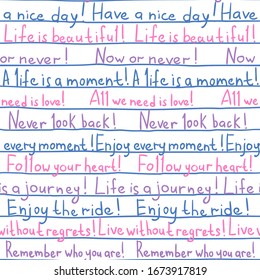 a nice day! Have a nice day! Have
Life is beautiful! Life is beautiful!
or never! Now or never! Now
A life is a moment! A life is a moment!
need is love! All we need is love! All we
Never look back! Never look back!
every moment! Enjoy every moment! Enjoy
Follow your heart! Follow your heart!
is a journey! Life is a journey! Life is
Enjoy the ride! Enjoy the ride!
without regrets! Live without regrets! Live
Remember who you are! Remember who you are!
shutterstock.com · 1673917819